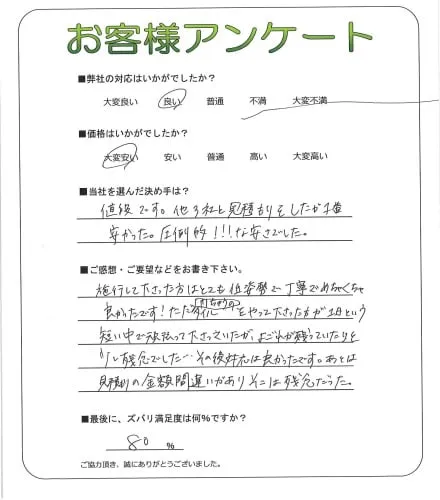 お客様アンケート
■弊社の対応はいかがでしたか？
大変良い 良い 普通 不満 大変不満
■価格はいかがでしたか？
大変安い 安い 普通 高い 大変高い
■当社を選んだ決め手は？
値段です。他3社と見積もりをしたが1番
安かった。圧倒的!!!な安さでした。
■ご感想・ご要望などをお書き下さい。
施行して下さった方はとても低姿勢で丁寧でめちゃくちゃ
良かったです！ただ をやって下さった方が1日という
短い中で頑張って下さっていたが、よごれが残っていたりと
少し残念でした…その後対応は良かったです。あとは
見積りの金額間違いがありそこは残念だった。
■最後に、ズバリ満足度は何%ですか？
80 %
ご協力頂き、誠にありがとうございました。